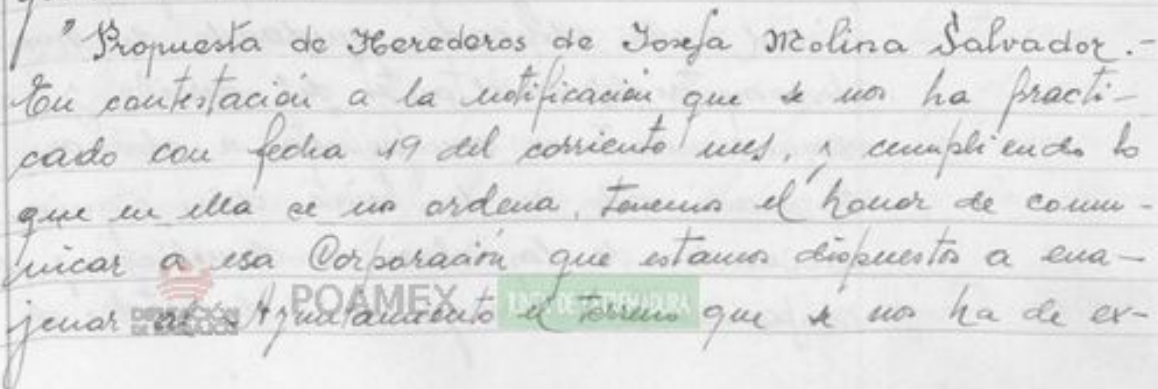 " Propuesta de Herederos de Josefa Molina Salvador.-
En contestación a la notificación que se nos ha practi-
cado con fecha 19 del corriento mes, y cumpliendo lo
que en ella se nos ordena, tenemos el honor de comu-
nicar a esa Corporación que estamos dispuestos a ena-
jenar Ayuntamiento el terreno que se nos ha de ex-
DIPUTACIÓN
DE BADAJOZ
POAMEX
JUNTA DE EXTREMADURA